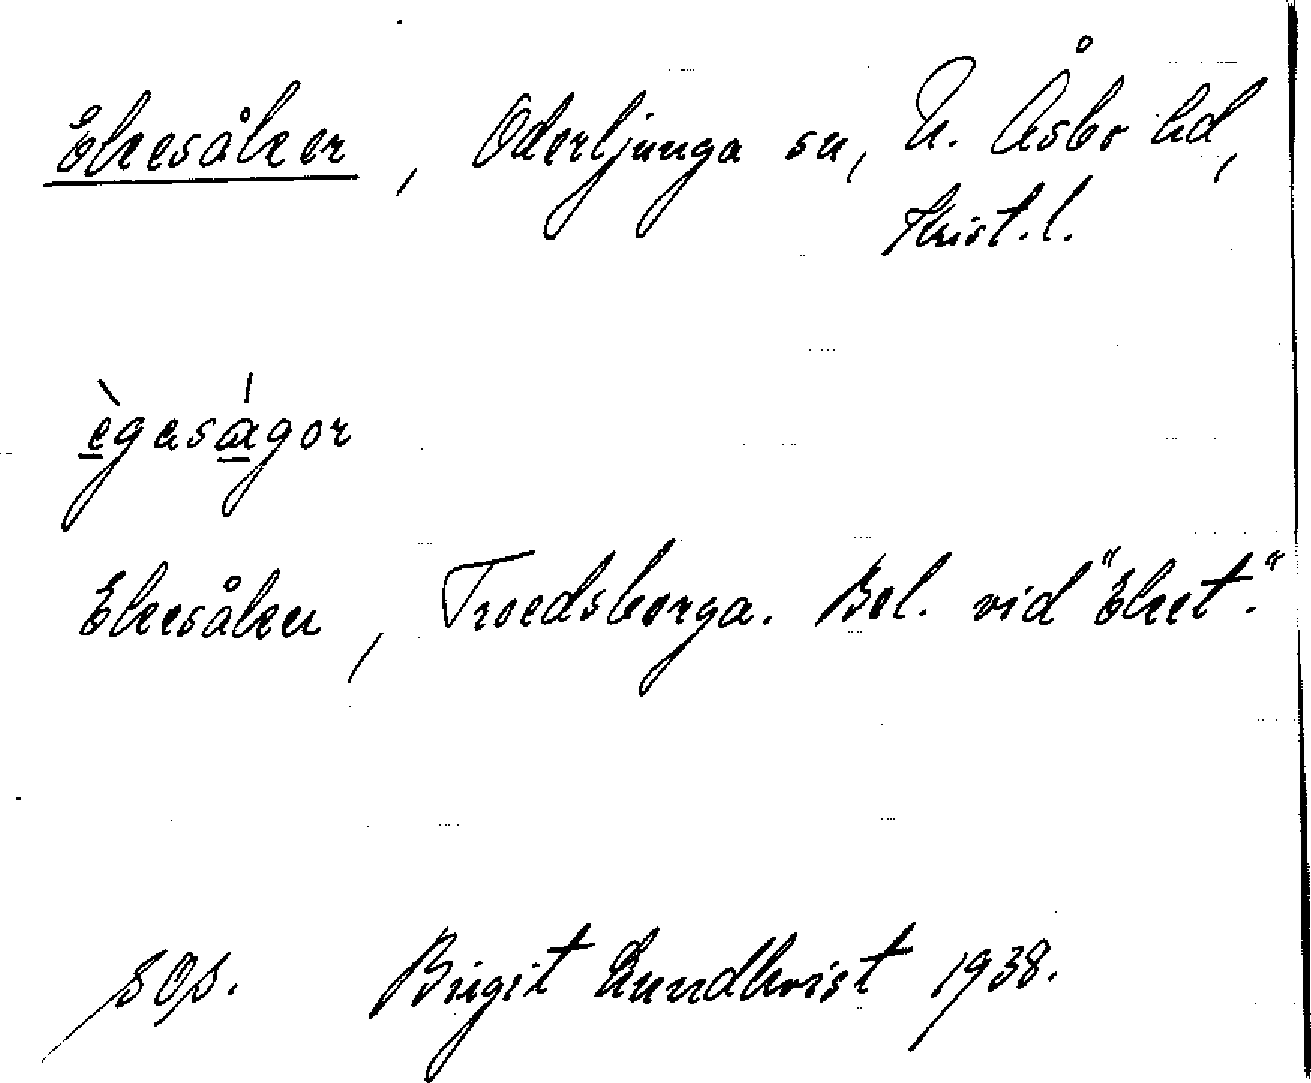 Ekesåker, Oderljunga sn, N. Åsbo hd,
Krist. l.
ègaságor
Ekesåker, Troedsberga. Bel. vid "Eket."
Birgit Lundkvist 1938.